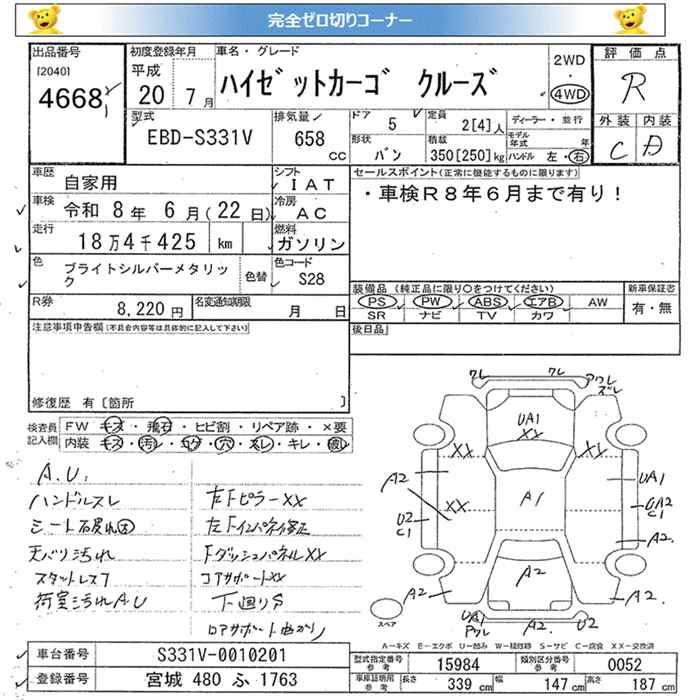 完全ゼロ切りコーナー
出品番号 初度登録年月 車名・グレード 2WD 評価点
[2040] 平成 ハイゼットカーゴ クルーズ ・ R
4668 20 7月 4WD
型式 排気量 ドア 定員 ディーラー・並行 外装 内装
EBD-S331V 658 CC 5 2[4]人 モデル年式 年 C D
形状 積載 ハンドル 左・右
バン 350[250]kg
車歴 自家用 シフト IAT セールスポイント(正常に機能するものに限ります)
車検 令和 8年 6月(22日) 冷房 AC ・車検R8年6月まで有り!
走行 18万4千425 km 燃料 ガソリン
色 ブライトシルバーメタリック 色替 色コード S28
装備品(純正品に限り○をつけてください) 新車保証書
R券 8,220円 名変通知期限 月 日 PS PW ABS エアB AW 有・無
SR ナビ TV カワ
注意事項申告欄(不具合内容等は具体的に記入して下さい) 後日品
修復歴 有[箇所 ]
検査員記入欄 FW キズ・飛石・ヒビ割・リペア跡・×要
内装 キズ・汚レ・コゲ・穴・スレ・キレ・臭
A.U.
ハンドルスレ 左FピラーXX
左Fインパネ修正
天バリ汚れ FダッシュパネルXX
スタットレス7 コアサポートXX
荷室汚れA.U 下廻りS
ロアサポート曲がり
ワレ ワレ アワレ ズレ
UA1
XX
XX XX
A2 XX A1 UA1
U2 C1 UA2 C1
A2
A2 A2 A2
UA1 アワレ U2
スペア
A-キズ E-エクボ U-凹み W-補修跡 S-サビ C-腐食 XX-交換済
車台番号 S331V-0010201 型式指定番号 参考 15984 類別区分番号 参考 0052
登録番号 宮城 480 ふ 1763 車庫証明用 参考 長さ 339 cm 幅 147 cm 高さ 187 cm